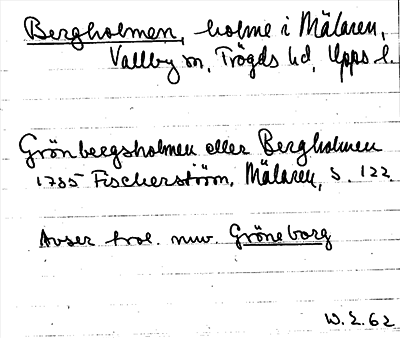 Bergholmen, holme i Mälaren,
Vallby sn, Trögds hd, Upps l.
Grönbergsholmen eller Bergholmen
1785 Fischerström, Mälaren, S. 122.
Avser trol. nuv. Gröneborg
W.E.62